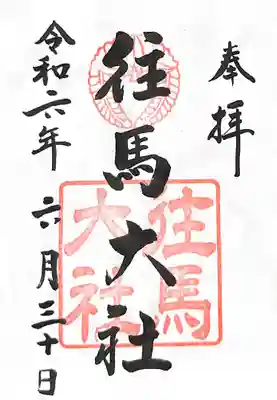 奉拝
往馬大社
往馬
大社
令和六年六月三十日